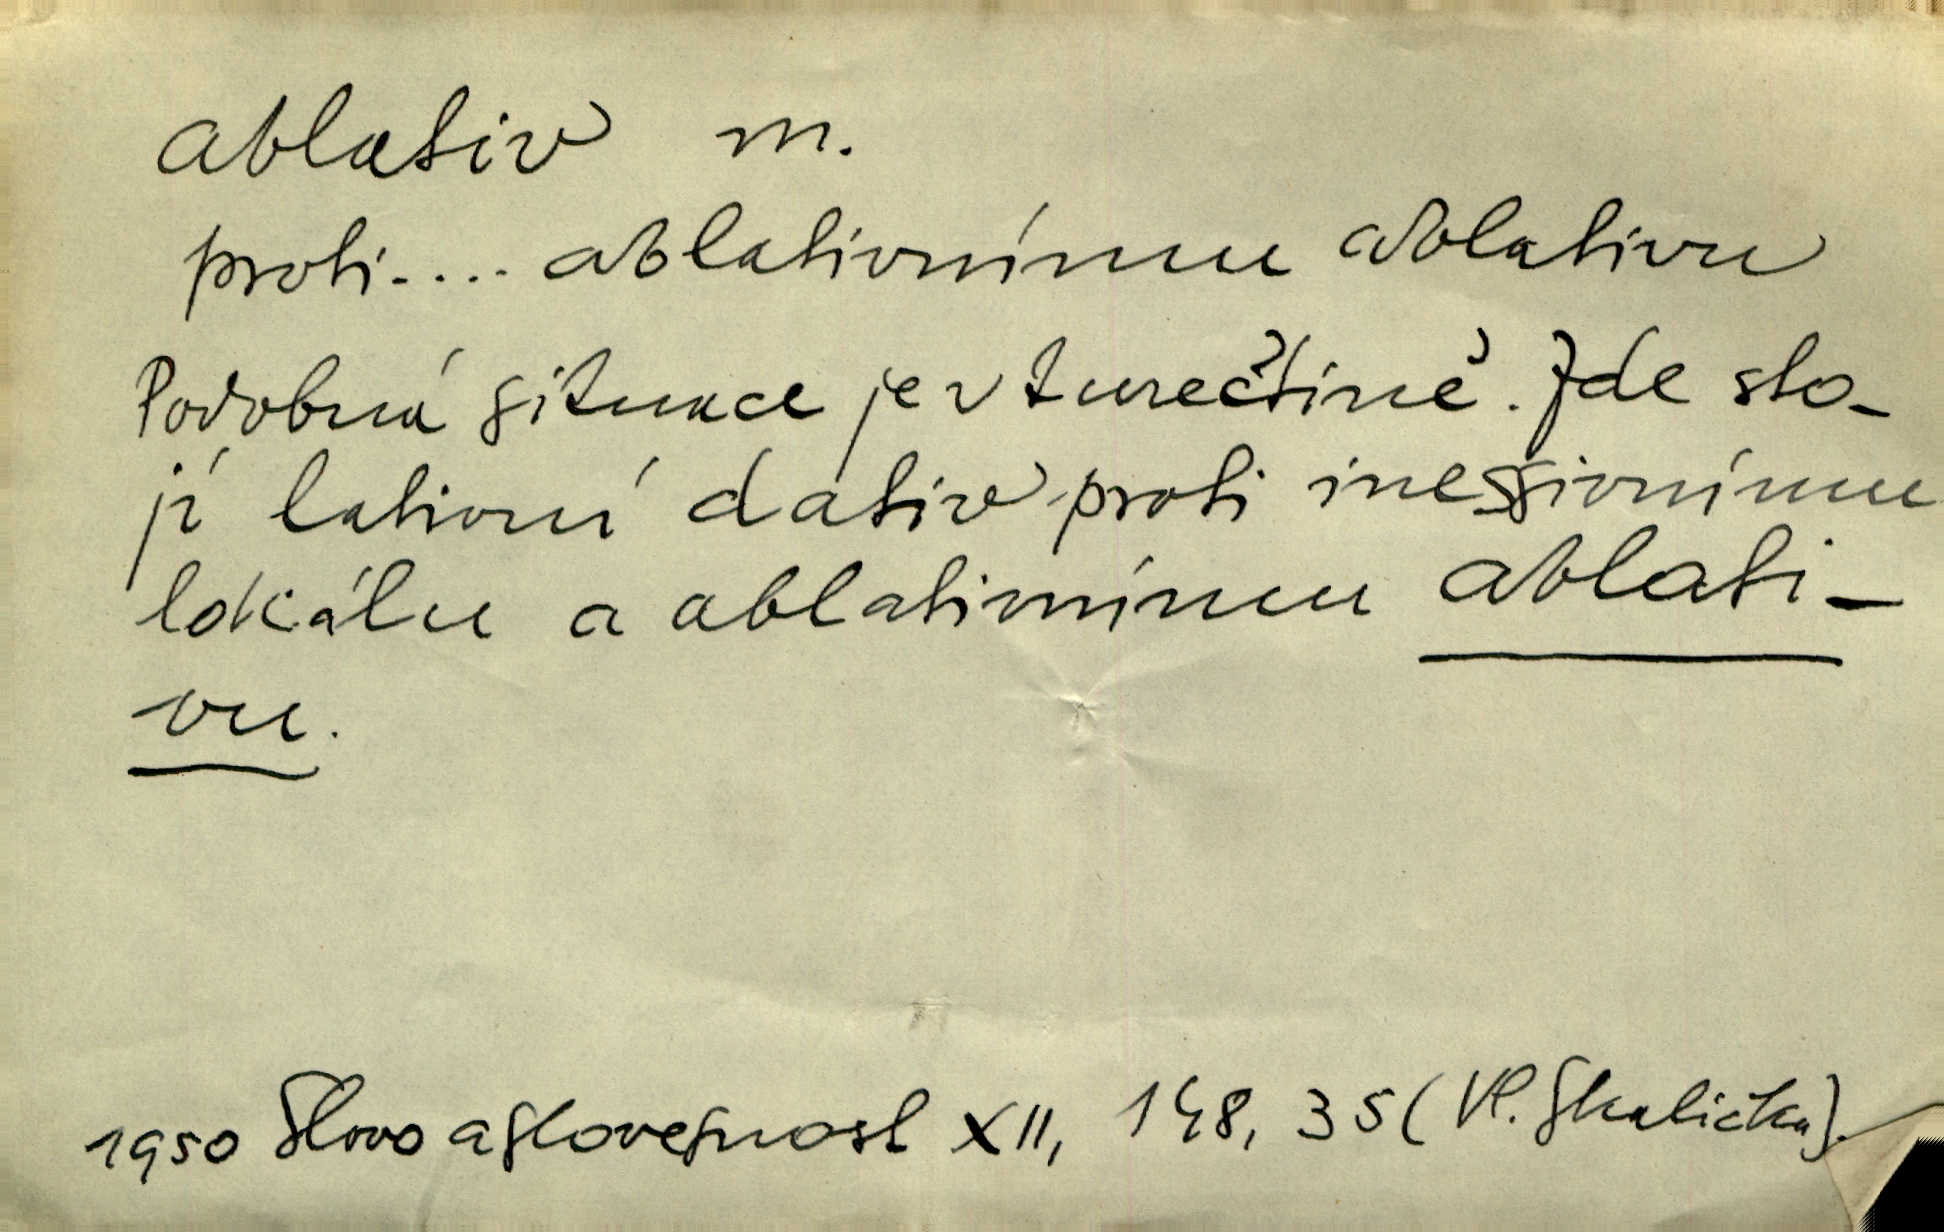 ablativ m.
proti.... ablativnímu ablativu
Podobná situace je v turečtině. Zde sto-
jí lativní dativ proti inessivnímu
lokálu a ablativnímu ablati-
vu.
1950 Slovo a slovesnost XII, 148, 35 (Vl. Skalička).